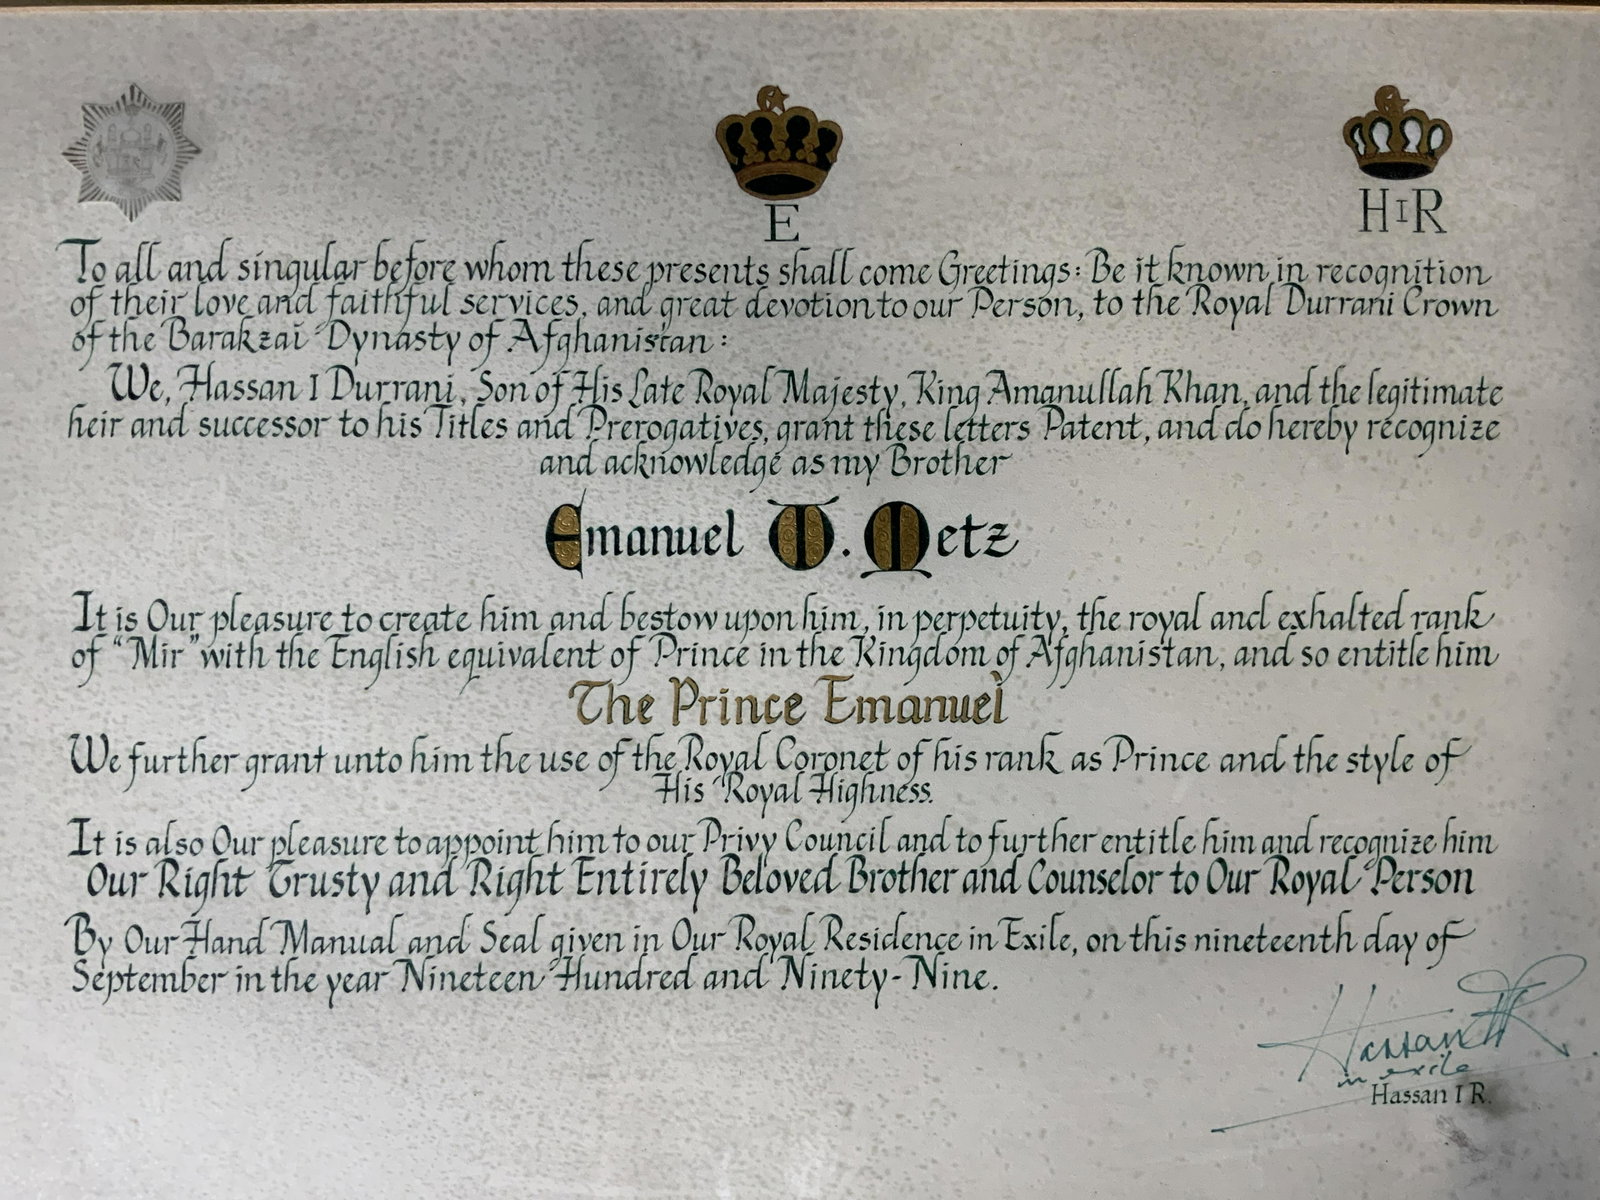 E
HIR
To all and singular before whom these presents shall come Greetings: Be it known in recognition
of their love and faithful services, and great devotion to our Person, to the Royal Durrani Crown
of the Barakzai Dynasty of Afghanistan:
We, Hassan I Durrani, Son of His Late Royal Majesty, King Amanullah Khan, and the legitimate
heir and successor to his Titles and Prerogatives, grant these letters Patent, and do hereby recognize
and acknowledge as my Brother
Emanuel T. Metz
It is Our pleasure to create him and bestow upon him, in perpetuity, the royal and exhalted rank
of "Mir" with the English equivalent of Prince in the Kingdom of Afghanistan, and so entitle him
The Prince Emanuel
We further grant unto him the use of the Royal Coronet of his rank as Prince and the style of
His Royal Highness.
It is also Our pleasure to appoint him to our Privy Council and to further entitle him and recognize him
Our Right Trusty and Right Entirely Beloved Brother and Counselor to Our Royal Person
By Our Hand Manual and Seal given in Our Royal Residence in Exile, on this nineteenth day of
September in the year Nineteen Hundred and Ninety-Nine.
Hassan IR
in exile
Hassan I R.